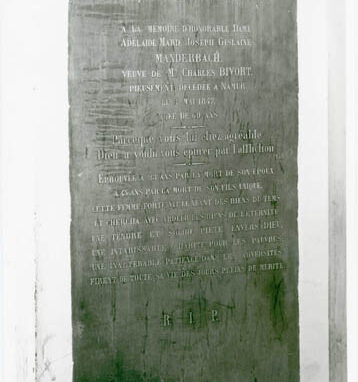 A LA MEMOIRE D'HONORABLE DAME
ADELAIDE MARIE JOSEPH GISLAINE
MANDERBACH,
VEUVE DE Mr CHARLES BIVORT,
PIEUSEMENT DECEDEE A NAMUR
LE MAI 1847,
AGEE DE 60 ANS
Parceque vous étiez agréable
Dieu a voulu vous épurer par l'affliction
EPROUVEE A ANS PAR LA MORT DE SON EPOUX
A ANS PAR LA MORT DE SON FILS UNIQUE,
CETTE FEMME FORTE DES BIENS DU TEMS
ET CHERCHA AVEC ARDEUR LES BIENS DE L'ETERNITE
UNE TENDRE ET SOLIDE PIETE ENVERS DIEU,
UNE INTARISSABLE CHARITE POUR LES PAUVRES,
UNE INALTERABLE PATIENCE DANS LES ADVERSITES
FIRENT DE TOUTE SA VIE DES JOURS PLEINS DE MERITE.
R. I. P.